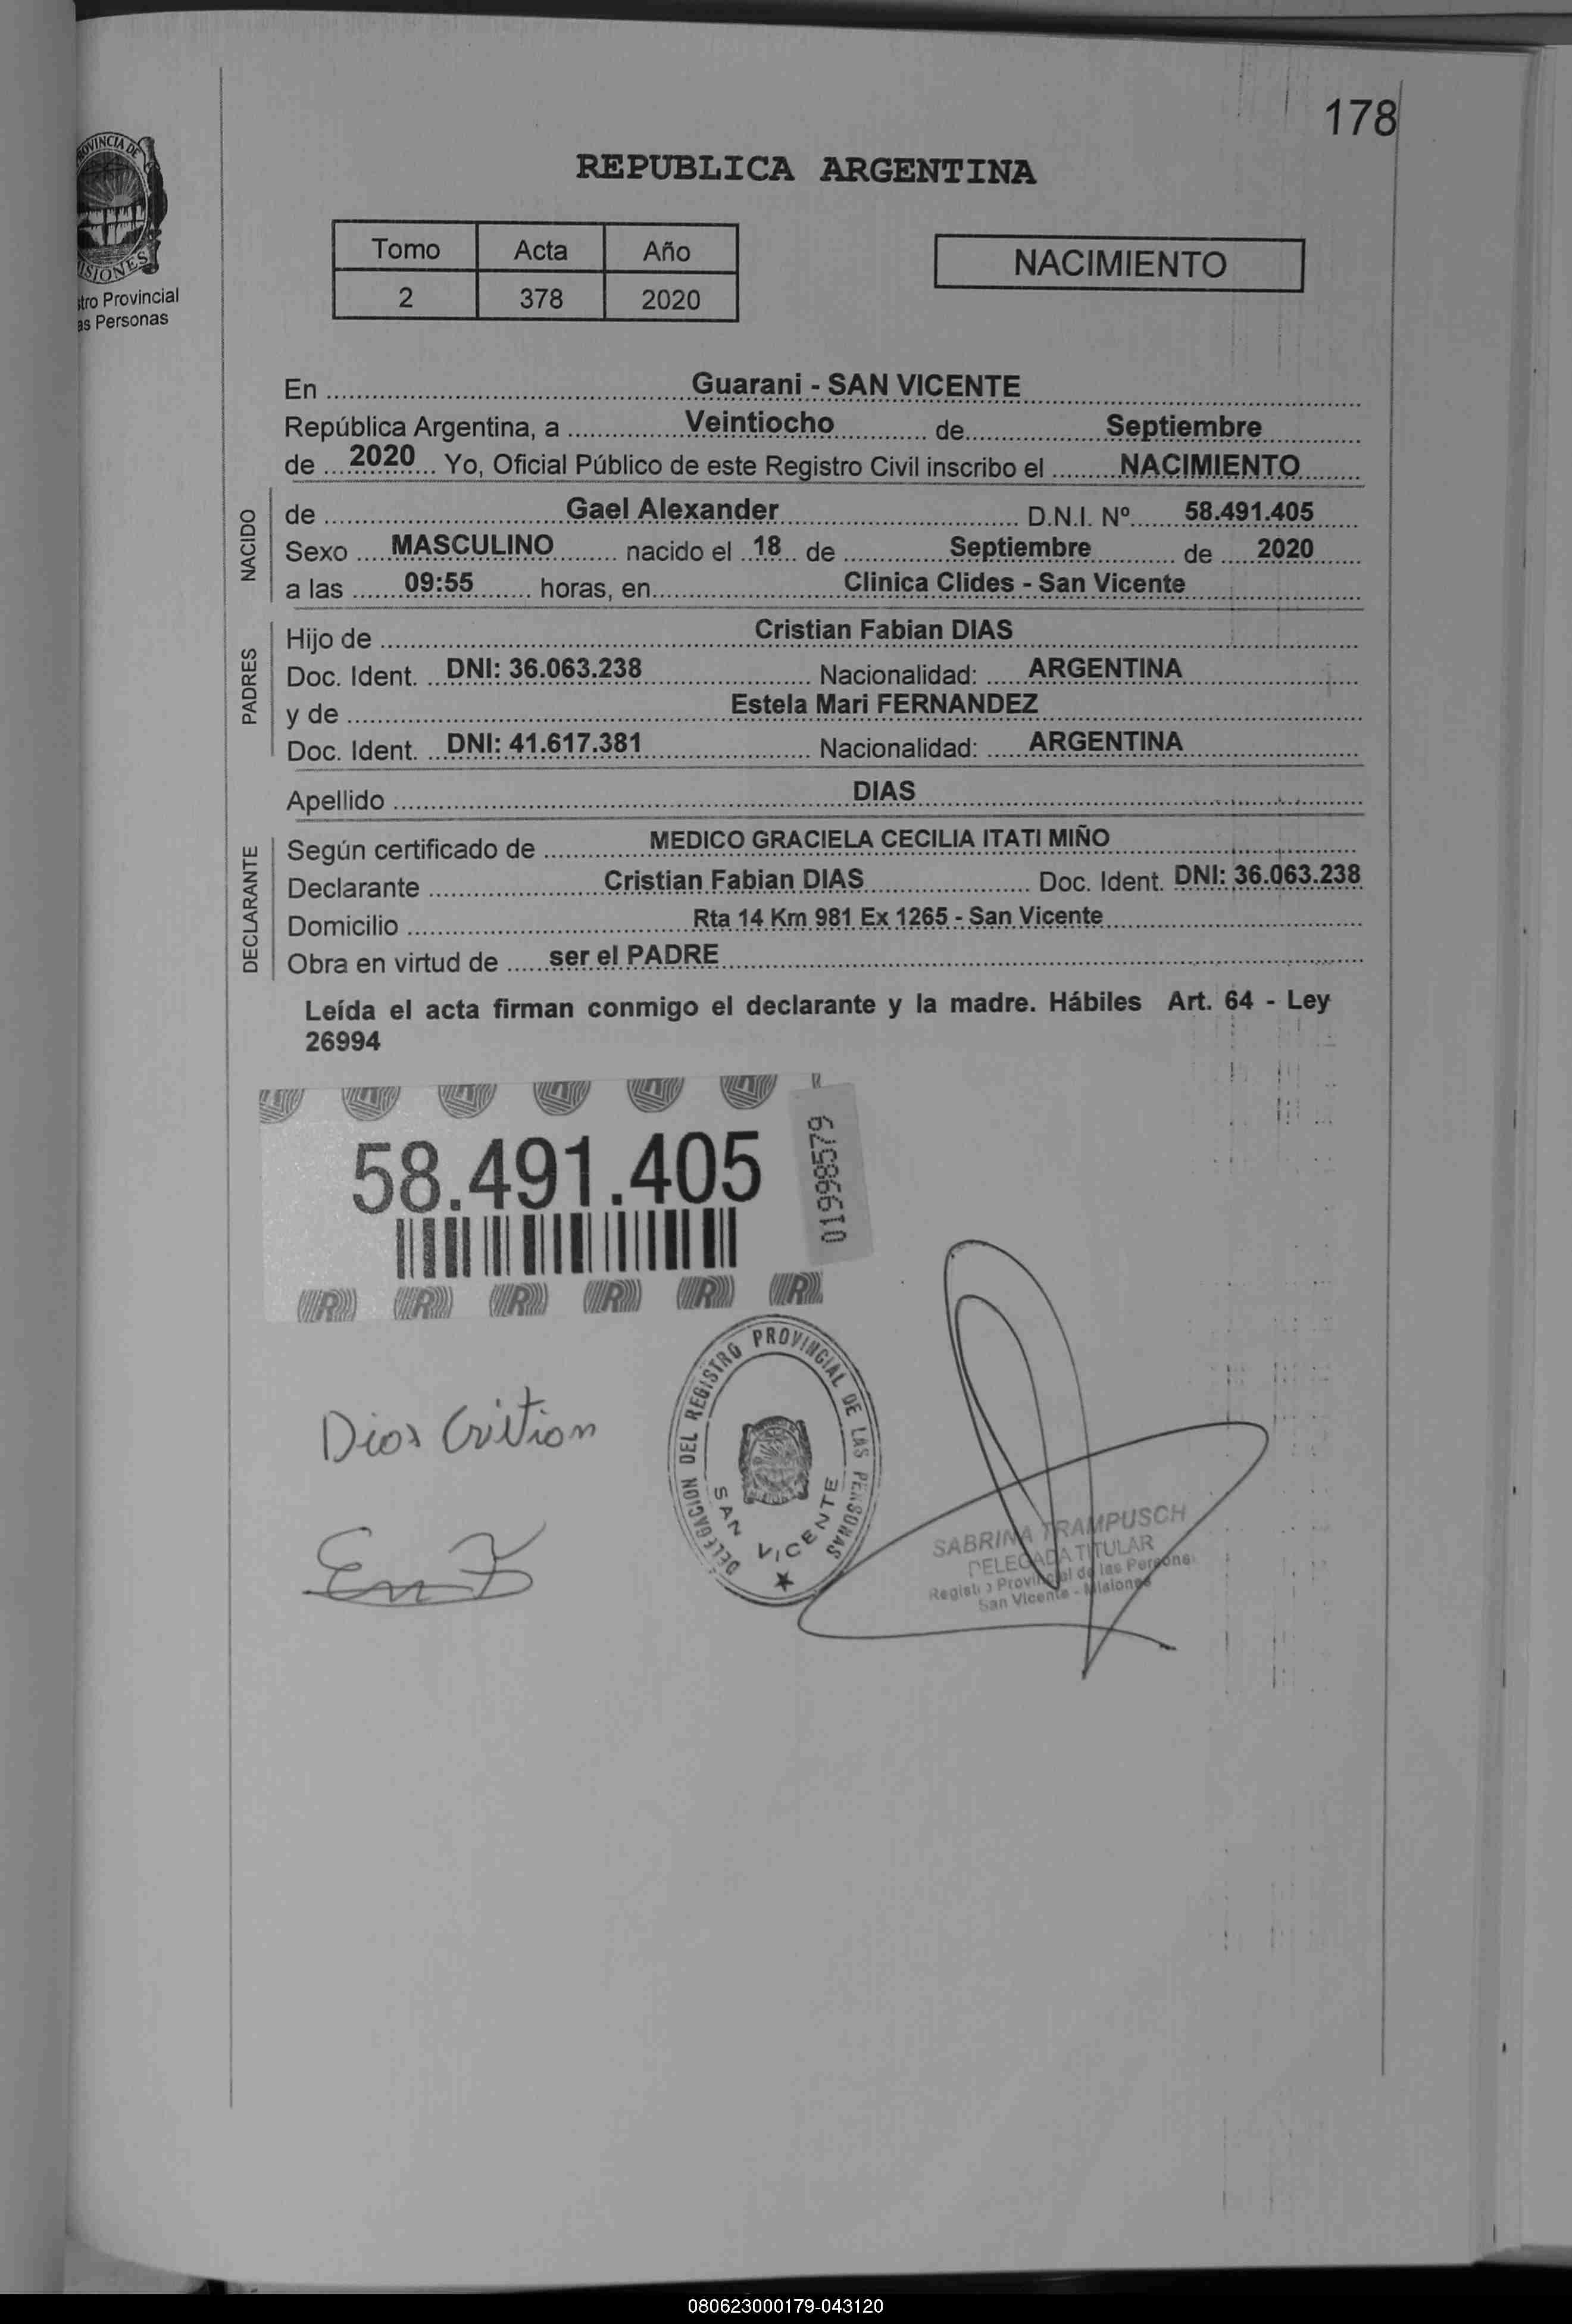 178
PROVINCIA DE
MISIONES
tro Provincial
as Personas
REPUBLICA ARGENTINA
Tomo Acta Año
2 378 2020
NACIMIENTO
En Guarani - SAN VICENTE
República Argentina, a Veintiocho de Septiembre
de 2020 Yo, Oficial Público de este Registro Civil inscribo el NACIMIENTO
NACIDO
de Gael Alexander D.N.I. Nº 58.491.405
Sexo MASCULINO nacido el 18 de Septiembre de 2020
a las 09:55 horas, en Clinica Clides - San Vicente
PADRES
Hijo de Cristian Fabian DIAS
Doc. Ident. DNI: 36.063.238 Nacionalidad: ARGENTINA
y de Estela Mari FERNANDEZ
Doc. Ident. DNI: 41.617.381 Nacionalidad: ARGENTINA
Apellido DIAS
DECLARANTE
Según certificado de MEDICO GRACIELA CECILIA ITATI MIÑO
Declarante Cristian Fabian DIAS Doc. Ident. DNI: 36.063.238
Domicilio Rta 14 Km 981 Ex 1265 - San Vicente
Obra en virtud de ser el PADRE
Leída el acta firman conmigo el declarante y la madre. Hábiles Art. 64 - Ley
26994
58.491.405
01998579
DELEGACION DEL REGISTRO PROVINCIAL DE LAS PERSONAS
SAN VICENTE
SABRINA TRAMPUSCH
DELEGADA TITULAR
Registro Provincial de las Personas
San Vicente - Misiones
080623000179-043120